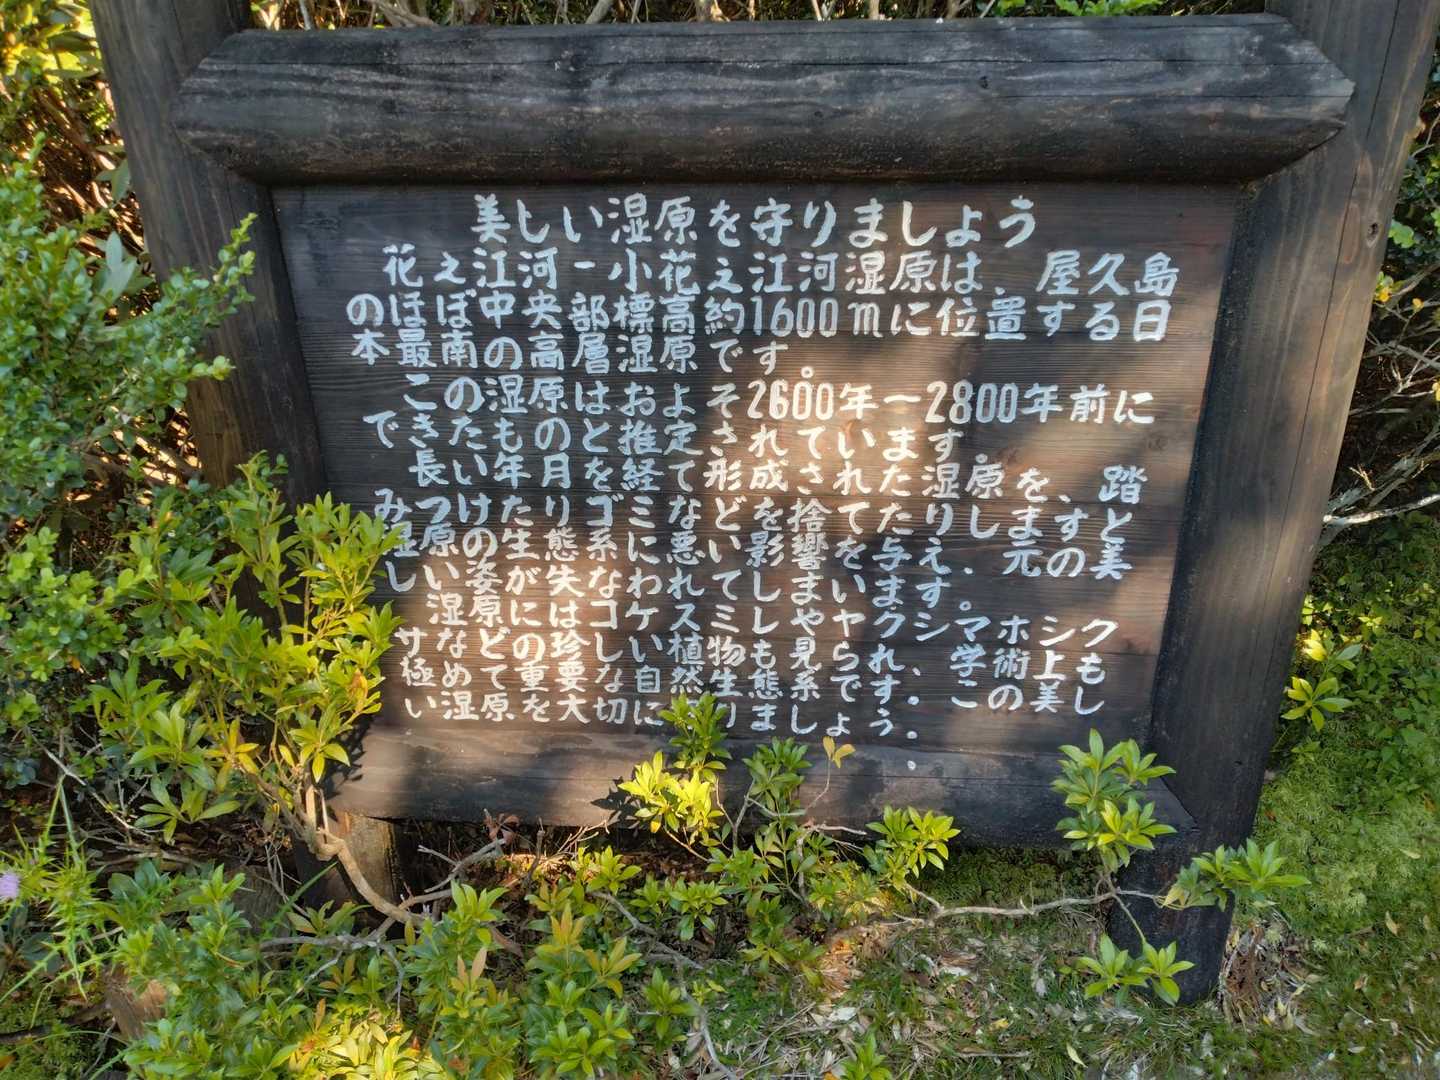 美しい湿原を守りましょう
花之江河ー小花之江河湿原は、屋久島
のほぼ中央部標高約1600mに位置する日
本最南の高層湿原です。
この湿原はおよそ2600年ー2800年前に
できたものと推定されています。
長い年月を経て形成された湿原を、踏
みつけたりゴミなどを捨てたりしますと
湿原の生態系に悪い影響を与え、元の美
しい姿が失なわれてしまいます。
湿原にはコケスミレやヤクシマホシク
サなどの珍しい植物も見られ、学術上も
極めて重要な自然生態系です。この美し
い湿原を大切にりましょう。